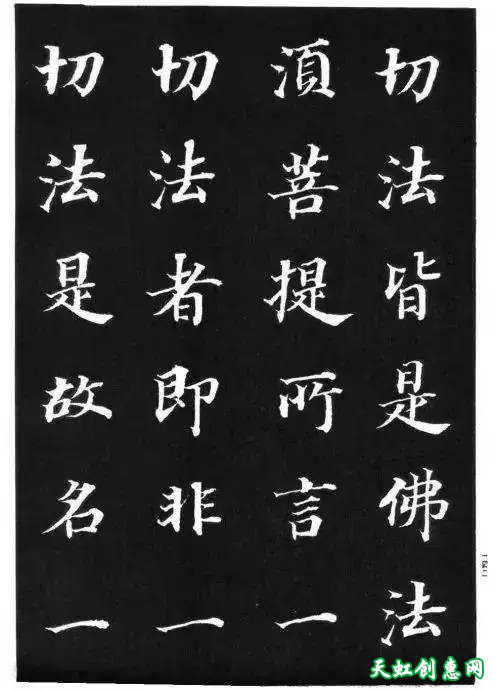 切法皆是佛法
湏菩提所言一
切法者即非一
切法是故名一
天虹创惠网